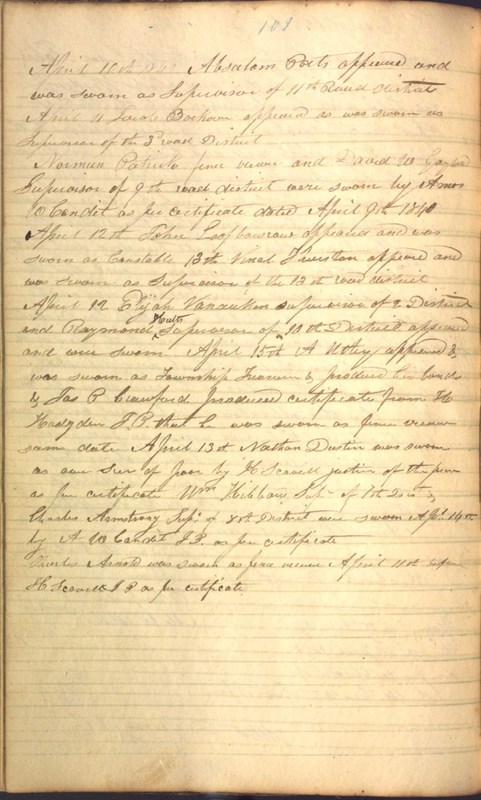 108
April 10th 1840 Absalom Poets appeared and
was sworn as Supervisor of 11th Road district
April 11 Jacob Bockoven appeared as was sworn as
Supervisor of the 3d road District
Norman Patrick fence viewer and David W
Supervisor of 9th road district were sworn by Amos
W Condit as per certificate dated April 9th 1840
April 12th John Loofbourow appeared and was
sworn as Constable 13th Vinal Thurston appeared and
was sworn as Supervisor of the 13th road district
April 12 Elijah Vanauken supervisor of 2 District
and Raymond Hults Supervisor of 10th District appeared
and were sworn April 15th A Utley appeared &
was sworn as Township Treasurer & produced his bonds
& Jas P Crawford produced certificate from H
Hodgden J.P. that he was sworn as fence viewer
same date April 13th Nathan Dustin was sworn
as over Seer of Poor by H Scovell justice of the peace
as per certificate Wm Kibbey Sup. of 7th Dist &
Charles Armstrong Sup. of 8th District were sworn Apl 14th
by A W Condit J.P. as per certificate
Charles Arnold was sworn as fence viewer April 11th before
H Scovell J P as per certificate